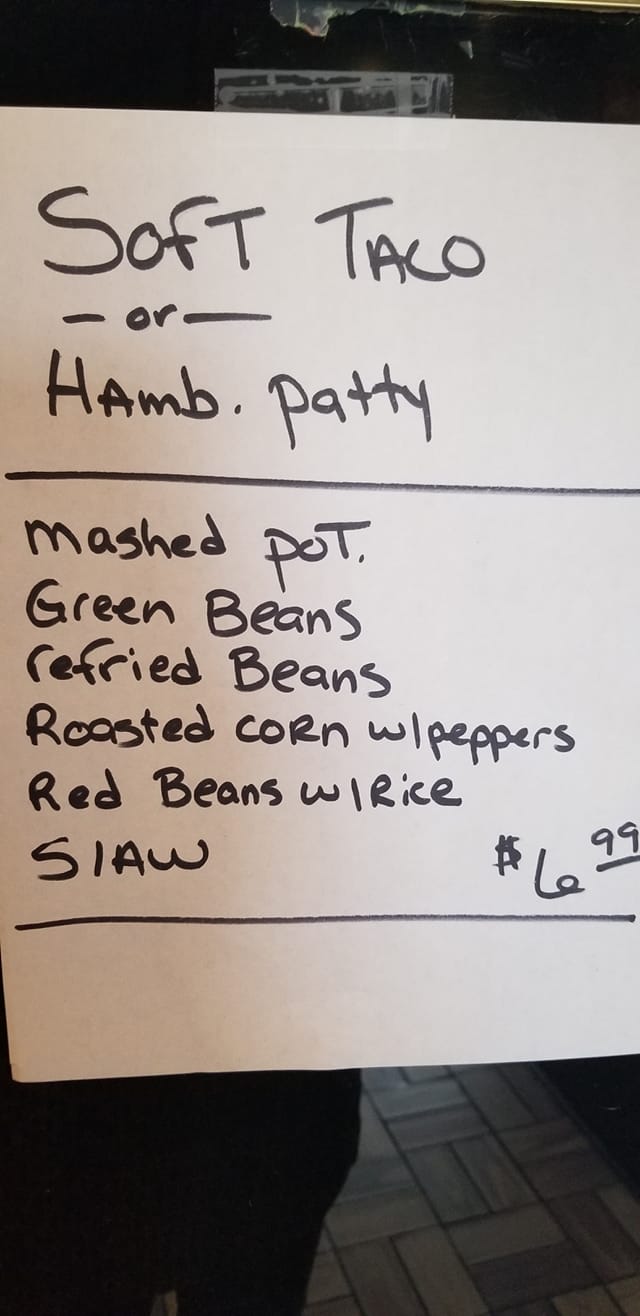 SOFT TACO
- or -
HAmb. patty
mashed poT.
Green Beans
refried Beans
Roasted CORn w/peppers
Red Beans w/Rice
SlAW $6.99